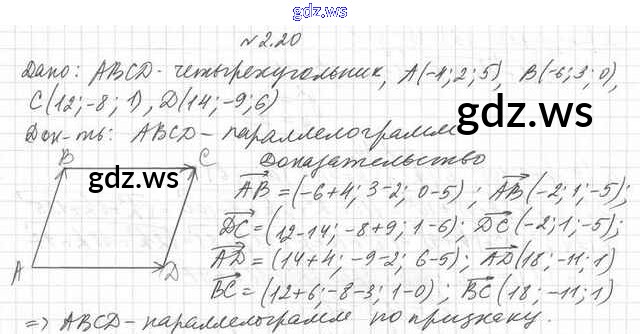 gdz.ws
№2.20
Дано: ABCD - четырехугольник, A(-4; 2; 5), B(-6; 3; 0),
C(12; -8; 1), D(14; -9; 6)
gdz.ws
Док-ть: ABCD - параллелограмм
B C Доказательство
gdz.ws
AB = (-6+4; 3-2; 0-5); AB(-2; 1; -5);
DC = (12-14; -8+9; 1-6); DC(-2; 1; -5);
A D AD = (14+4; -9-2; 6-5); AD(18; -11; 1)
BC = (12+6; -8-3; 1-0); BC(18; -11; 1)
=> ABCD - параллелограмм по признаку.